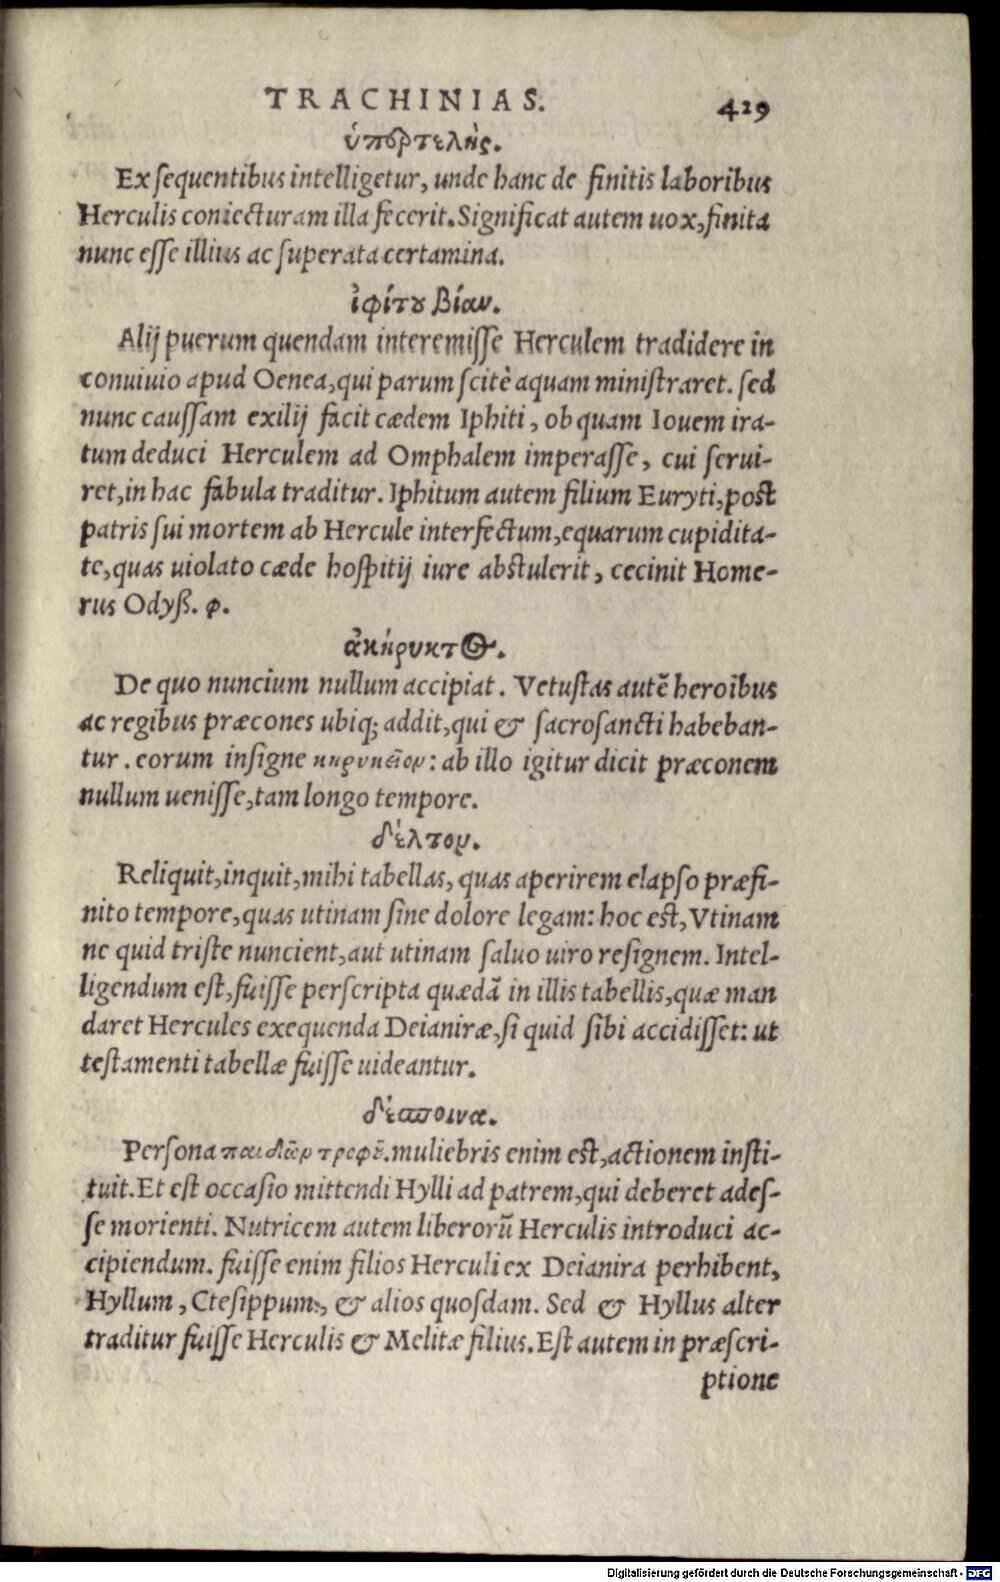 TRACHINIAS. 429
ὑπερτελής.
Ex sequentibus intelligetur, unde hanc de finitis laboribus
Herculis coniecturam illa fecerit. Significat autem uox, finita
nunc esse illius ac superata certamina.
ἰφίτου βίαν.
Alij puerum quendam interemisse Herculem tradidere in
conuiuio apud Oenea, qui parum scitè aquam ministraret. sed
nunc caussam exilij facit cædem Iphiti, ob quam Iouem ira-
tum deduci Herculem ad Omphalem imperasse, cui serui-
ret, in hac fabula traditur. Iphitum autem filium Euryti, post
patris sui mortem ab Hercule interfectum, equarum cupidita-
te, quas uiolato cæde hospitij iure abstulerit, cecinit Home-
rus Odyß. φ.
ἀκήρυκτος.
De quo nuncium nullum accipiat. Vetustas autẽ heroibus
ac regibus præcones ubiq; addit, qui & sacrosancti haban-
tur. eorum insigne κηρυκεῖον: ab illo igitur dicit præconem
nullum uenisse, tam longo tempore.
δέλτον.
Reliquit, inquit, mihi tabellas, quas aperirem elapso præfi-
nito tempore, quas utinam sine dolore legam: hoc est, Vtinam
ne quid triste nuncient, aut utinam saluo uiro resignem. Intel-
ligendum est, fuisse perscripta quædã in illis tabellis, quæ man
daret Hercules exequenda Deianiræ, si quid sibi accidisset: ut
testamenti tabellæ fuisse uideantur.
δέσποινα.
Persona παιδῶν τροφοῦ. muliebris enim est, actionem insti-
tuit. Et est occasio mittendi Hylli ad patrem, qui deberet ades-
se morienti. Nutricem autem liberorũ Herculis introduci ac-
cipiendum. fuisse enim filios Herculi ex Deianira perhibent,
Hyllum, Ctesippum, & alios quosdam. Sed & Hyllus alter
traditur fuisse Herculis & Melitæ filius. Est autem in præscri-
ptione
Digitalisierung gefördert durch die Deutsche Forschungsgemeinschaft - DFG